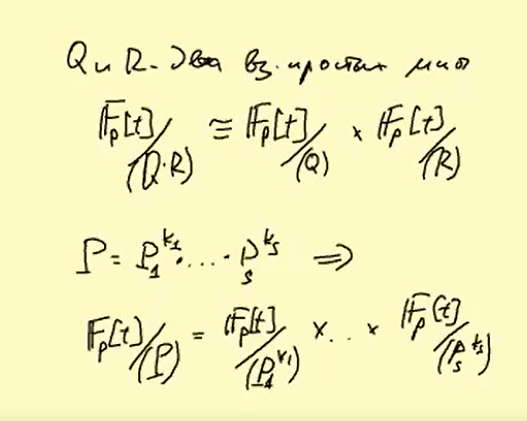 Q и R - два вз. простых мног
𝔽ₚ[t]/(Q·R) ≅ 𝔽ₚ[t]/(Q) × 𝔽ₚ[t]/(R)
P = P₁^{k₁} · ... · Pₛ^{kₛ} ⇒
𝔽ₚ[t]/(P) = 𝔽ₚ[t]/(P₁^{k₁}) × .. × 𝔽ₚ[t]/(Pₛ^{kₛ})